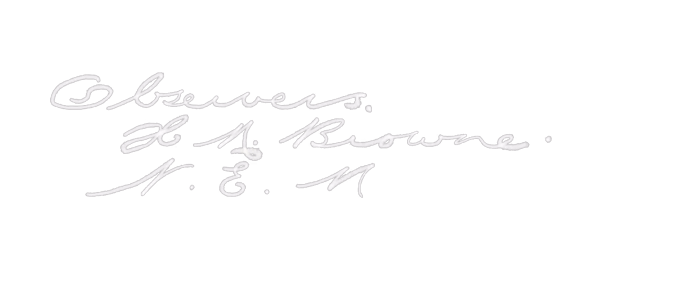 Observers.
H. N. Browne.
N. E. N